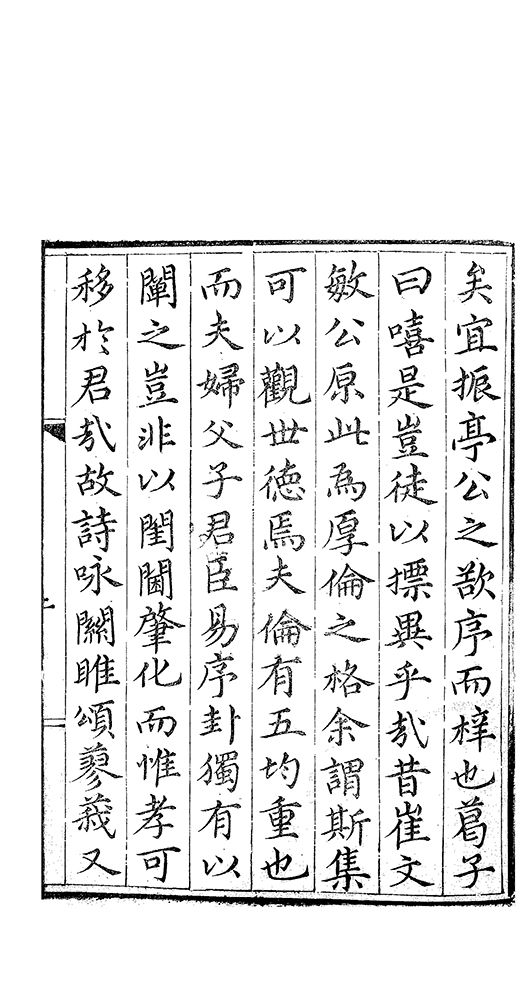 矣宜振亭公之欲序而梓也葛子
曰嘻是豈徒以摽異乎㢤昔崔文
敏公原此為厚倫之格余謂斯集
可以觀世徳焉夫倫有五均重也
而夫婦父子君臣易序卦獨有以
闡之豈非以閨閫肇化而惟孝可
移於君㢤故詩咏關雎頌蓼莪又